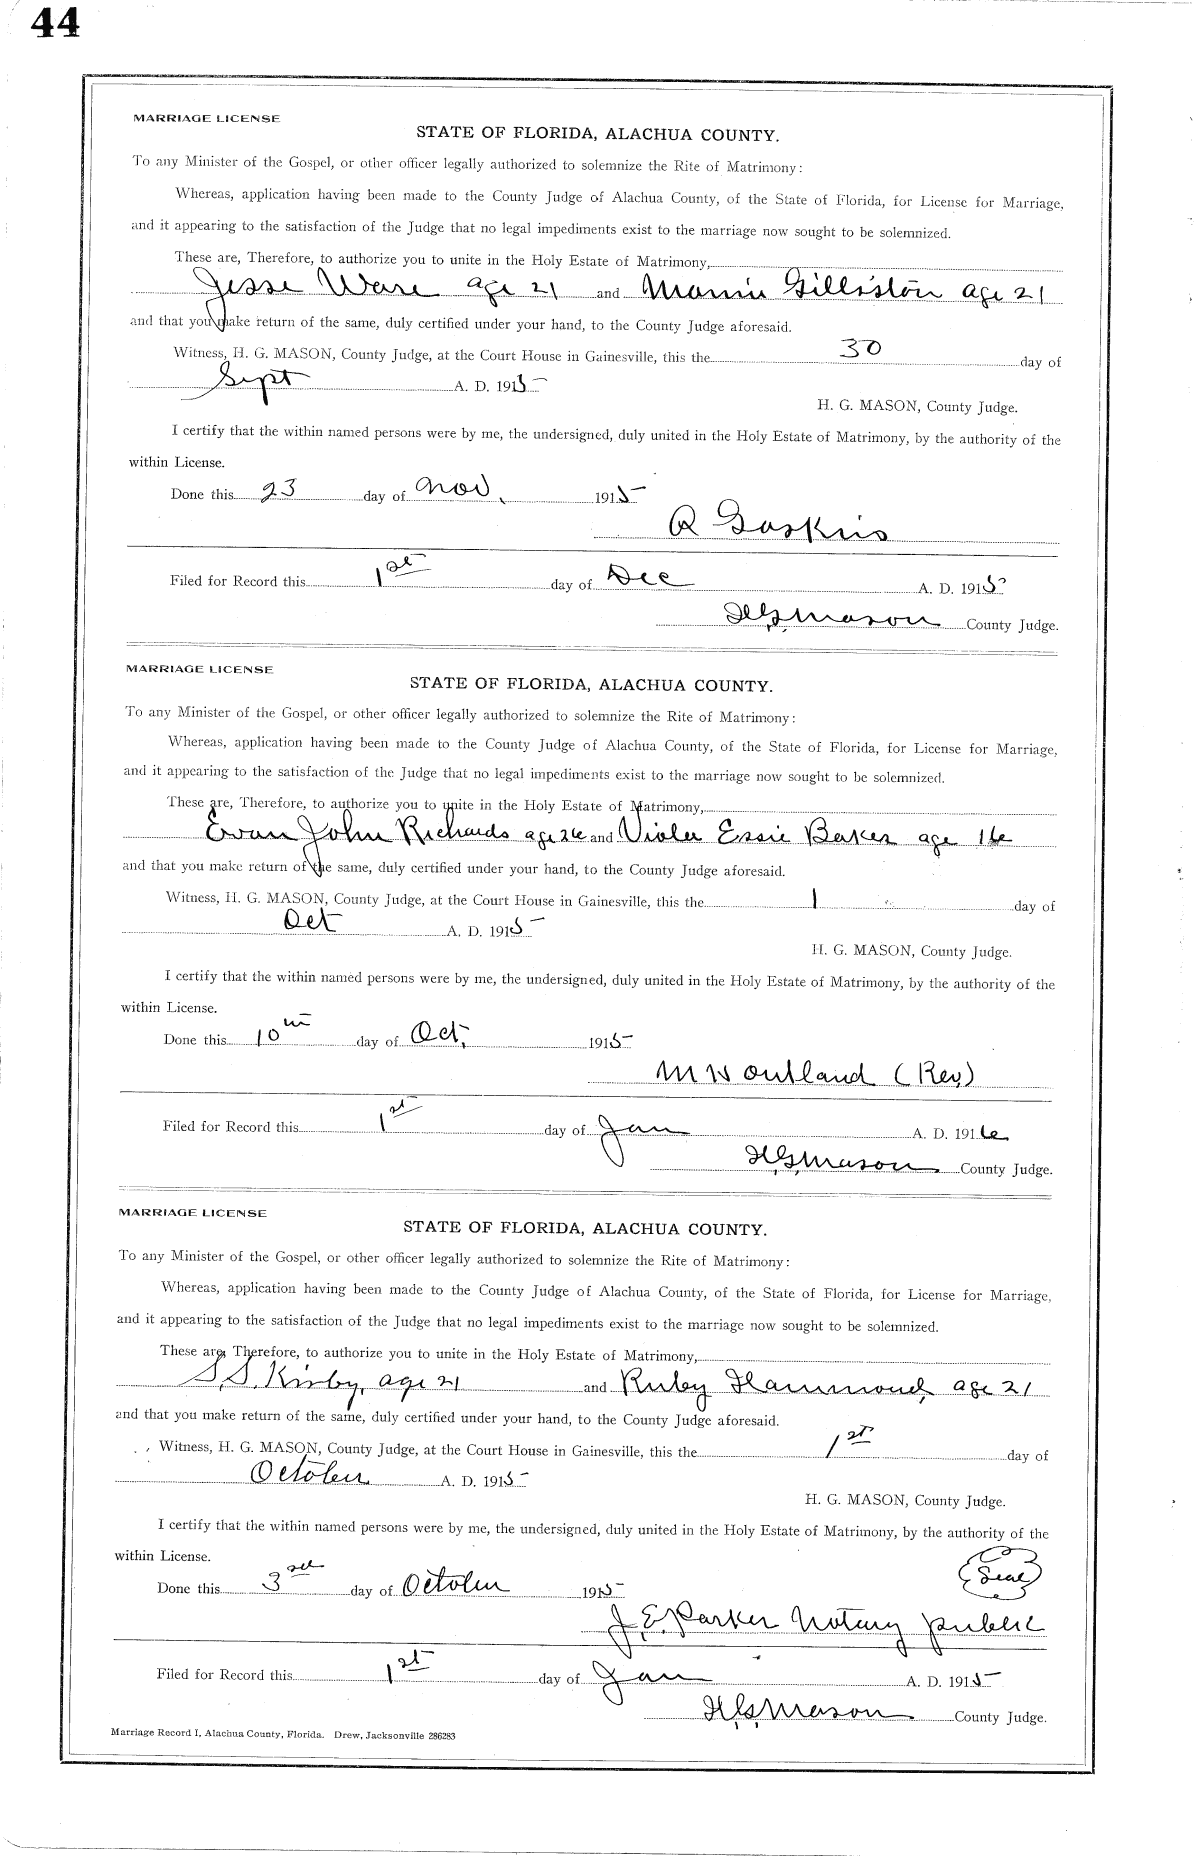 44
MARRIAGE LICENSE
STATE OF FLORIDA, ALACHUA COUNTY.
To any Minister of the Gospel, or other officer legally authorized to solemnize the Rite of Matrimony:
Whereas, application having been made to the County Judge of Alachua County, of the State of Florida, for License for Marriage,
and it appearing to the satisfaction of the Judge that no legal impediments exist to the marriage now sought to be solemnized.
These are, Therefore, to authorize you to unite in the Holy Estate of Matrimony,
Jesse Ware age 21 and Mamie Gilliston age 21
and that you make return of the same, duly certified under your hand, to the County Judge aforesaid.
Witness, H. G. MASON, County Judge, at the Court House in Gainesville, this the 30 day of
Sept A. D. 1915
H. G. MASON, County Judge.
I certify that the within named persons were by me, the undersigned, duly united in the Holy Estate of Matrimony, by the authority of the
within License.
Done this 23 day of Nov, 1915
R Gaskins
Filed for Record this 1st day of Dec A. D. 1915
H.G. Mason County Judge.
MARRIAGE LICENSE
STATE OF FLORIDA, ALACHUA COUNTY.
To any Minister of the Gospel, or other officer legally authorized to solemnize the Rite of Matrimony:
Whereas, application having been made to the County Judge of Alachua County, of the State of Florida, for License for Marriage,
and it appearing to the satisfaction of the Judge that no legal impediments exist to the marriage now sought to be solemnized.
These are, Therefore, to authorize you to unite in the Holy Estate of Matrimony,
Evan John Richards age 26 and Violer Essie Baker age 16
and that you make return of the same, duly certified under your hand, to the County Judge aforesaid.
Witness, H. G. MASON, County Judge, at the Court House in Gainesville, this the 1 day of
Oct A. D. 1915
H. G. MASON, County Judge.
I certify that the within named persons were by me, the undersigned, duly united in the Holy Estate of Matrimony, by the authority of the
within License.
Done this 10th day of Oct, 1915
M W Outland (Rev)
Filed for Record this 1st day of Jan A. D. 1916
H.G. Mason County Judge.
MARRIAGE LICENSE
STATE OF FLORIDA, ALACHUA COUNTY.
To any Minister of the Gospel, or other officer legally authorized to solemnize the Rite of Matrimony:
Whereas, application having been made to the County Judge of Alachua County, of the State of Florida, for License for Marriage,
and it appearing to the satisfaction of the Judge that no legal impediments exist to the marriage now sought to be solemnized.
These are, Therefore, to authorize you to unite in the Holy Estate of Matrimony,
S.S. Kirby, age 21 and Ruby Hammond, age 21
and that you make return of the same, duly certified under your hand, to the County Judge aforesaid.
Witness, H. G. MASON, County Judge, at the Court House in Gainesville, this the 1st day of
October A. D. 1915
H. G. MASON, County Judge.
I certify that the within named persons were by me, the undersigned, duly united in the Holy Estate of Matrimony, by the authority of the
within License.
Seal
Done this 3rd day of October 1915
J. E. Parker Notary public
Filed for Record this 1st day of Jan A. D. 1915
H.G. Mason County Judge.
Marriage Record I, Alachua County, Florida. Drew, Jacksonville 286283